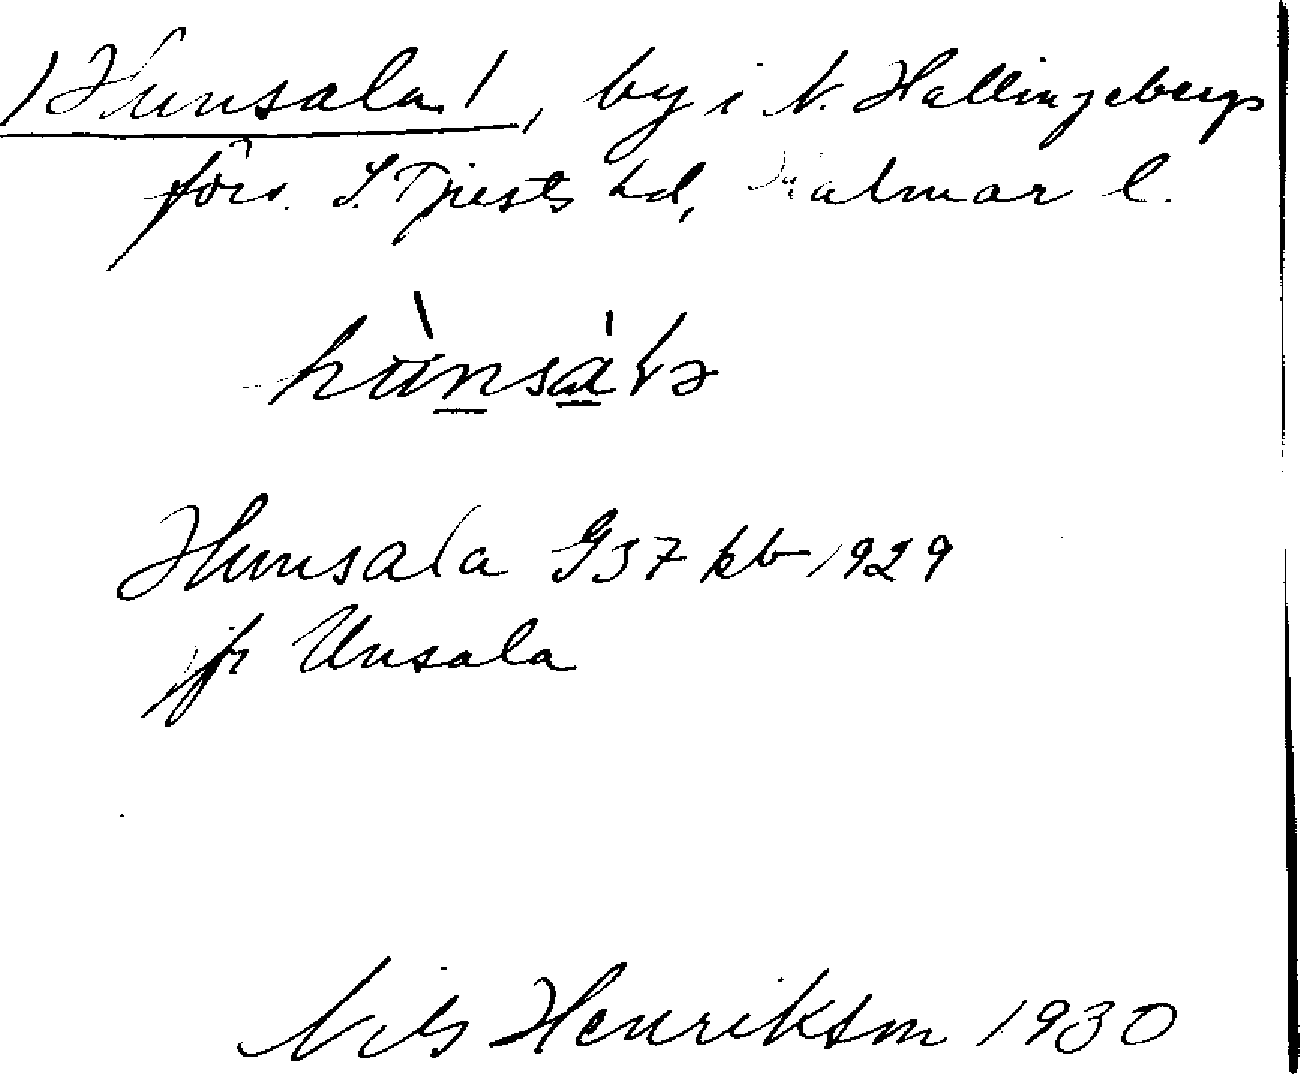 /Hunsala/, by i N. Hallingebergs
förs. S. Tjusts hd, Kalmar l.
hùnsáꞎə
Hunsala G 37 kb 1929
jfr Unsala
Nils Henrikson 1930